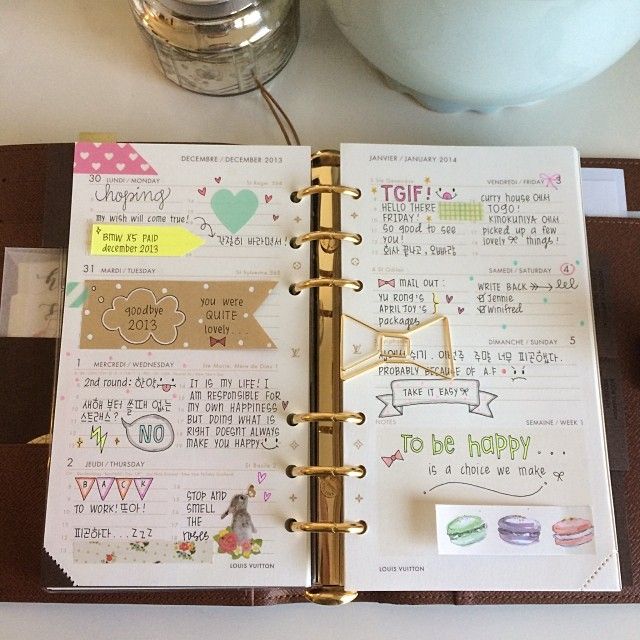 DECEMBRE / DECEMBER 2013
30 LUNDI / MONDAY
St Roger 364
hoping
my wish will come true!
BMW X5 PAID
december 2013
간절히 바라면서!
31 MARDI / TUESDAY
St Sylvestre 365
goodbye
2013
you were
QUITE
lovely....
1 MERCREDI / WEDNESDAY
Ste Marie, Mère de Dieu 1
2nd round: 하아
새해 부터 쓸데 없는
스트레스?
NO
IT IS MY LIFE! I
AM RESPONSIBLE FOR
MY OWN HAPPINESS
BUT DOING WHAT IS
RIGHT DOESN'T ALWAYS
MAKE YOU HAPPY
2 JEUDI / THURSDAY
St Basile 2
BACK
TO WORK! 또아!
피곤하다...zzz
STOP AND
SMELL
THE
roses
LOUIS VUITTON
JANVIER / JANUARY 2014
3 Ste Geneviève
VENDREDI / FRIDAY 3
TGIF!
HELLO THERE
FRIDAY!
so good to see
you!
회사 끝나고, 오빠랑
curry house OHM
TOGO!
KINOKUNIYA OHM
picked up a few
lovely things!
4 St Odilon
SAMEDI / SATURDAY 4
MAIL OUT:
YU RONG'S
APRIL JOY'S
packages
WRITE BACK
Jennie
Winifred
DIMANCHE / SUNDAY 5
너무 피곤했다.
PROBABLY BECAUSE OF A.F
TAKE IT EASY
NOTES
SEMAINE / WEEK 1
To be happy...
is a choice we make
LOUIS VUITTON